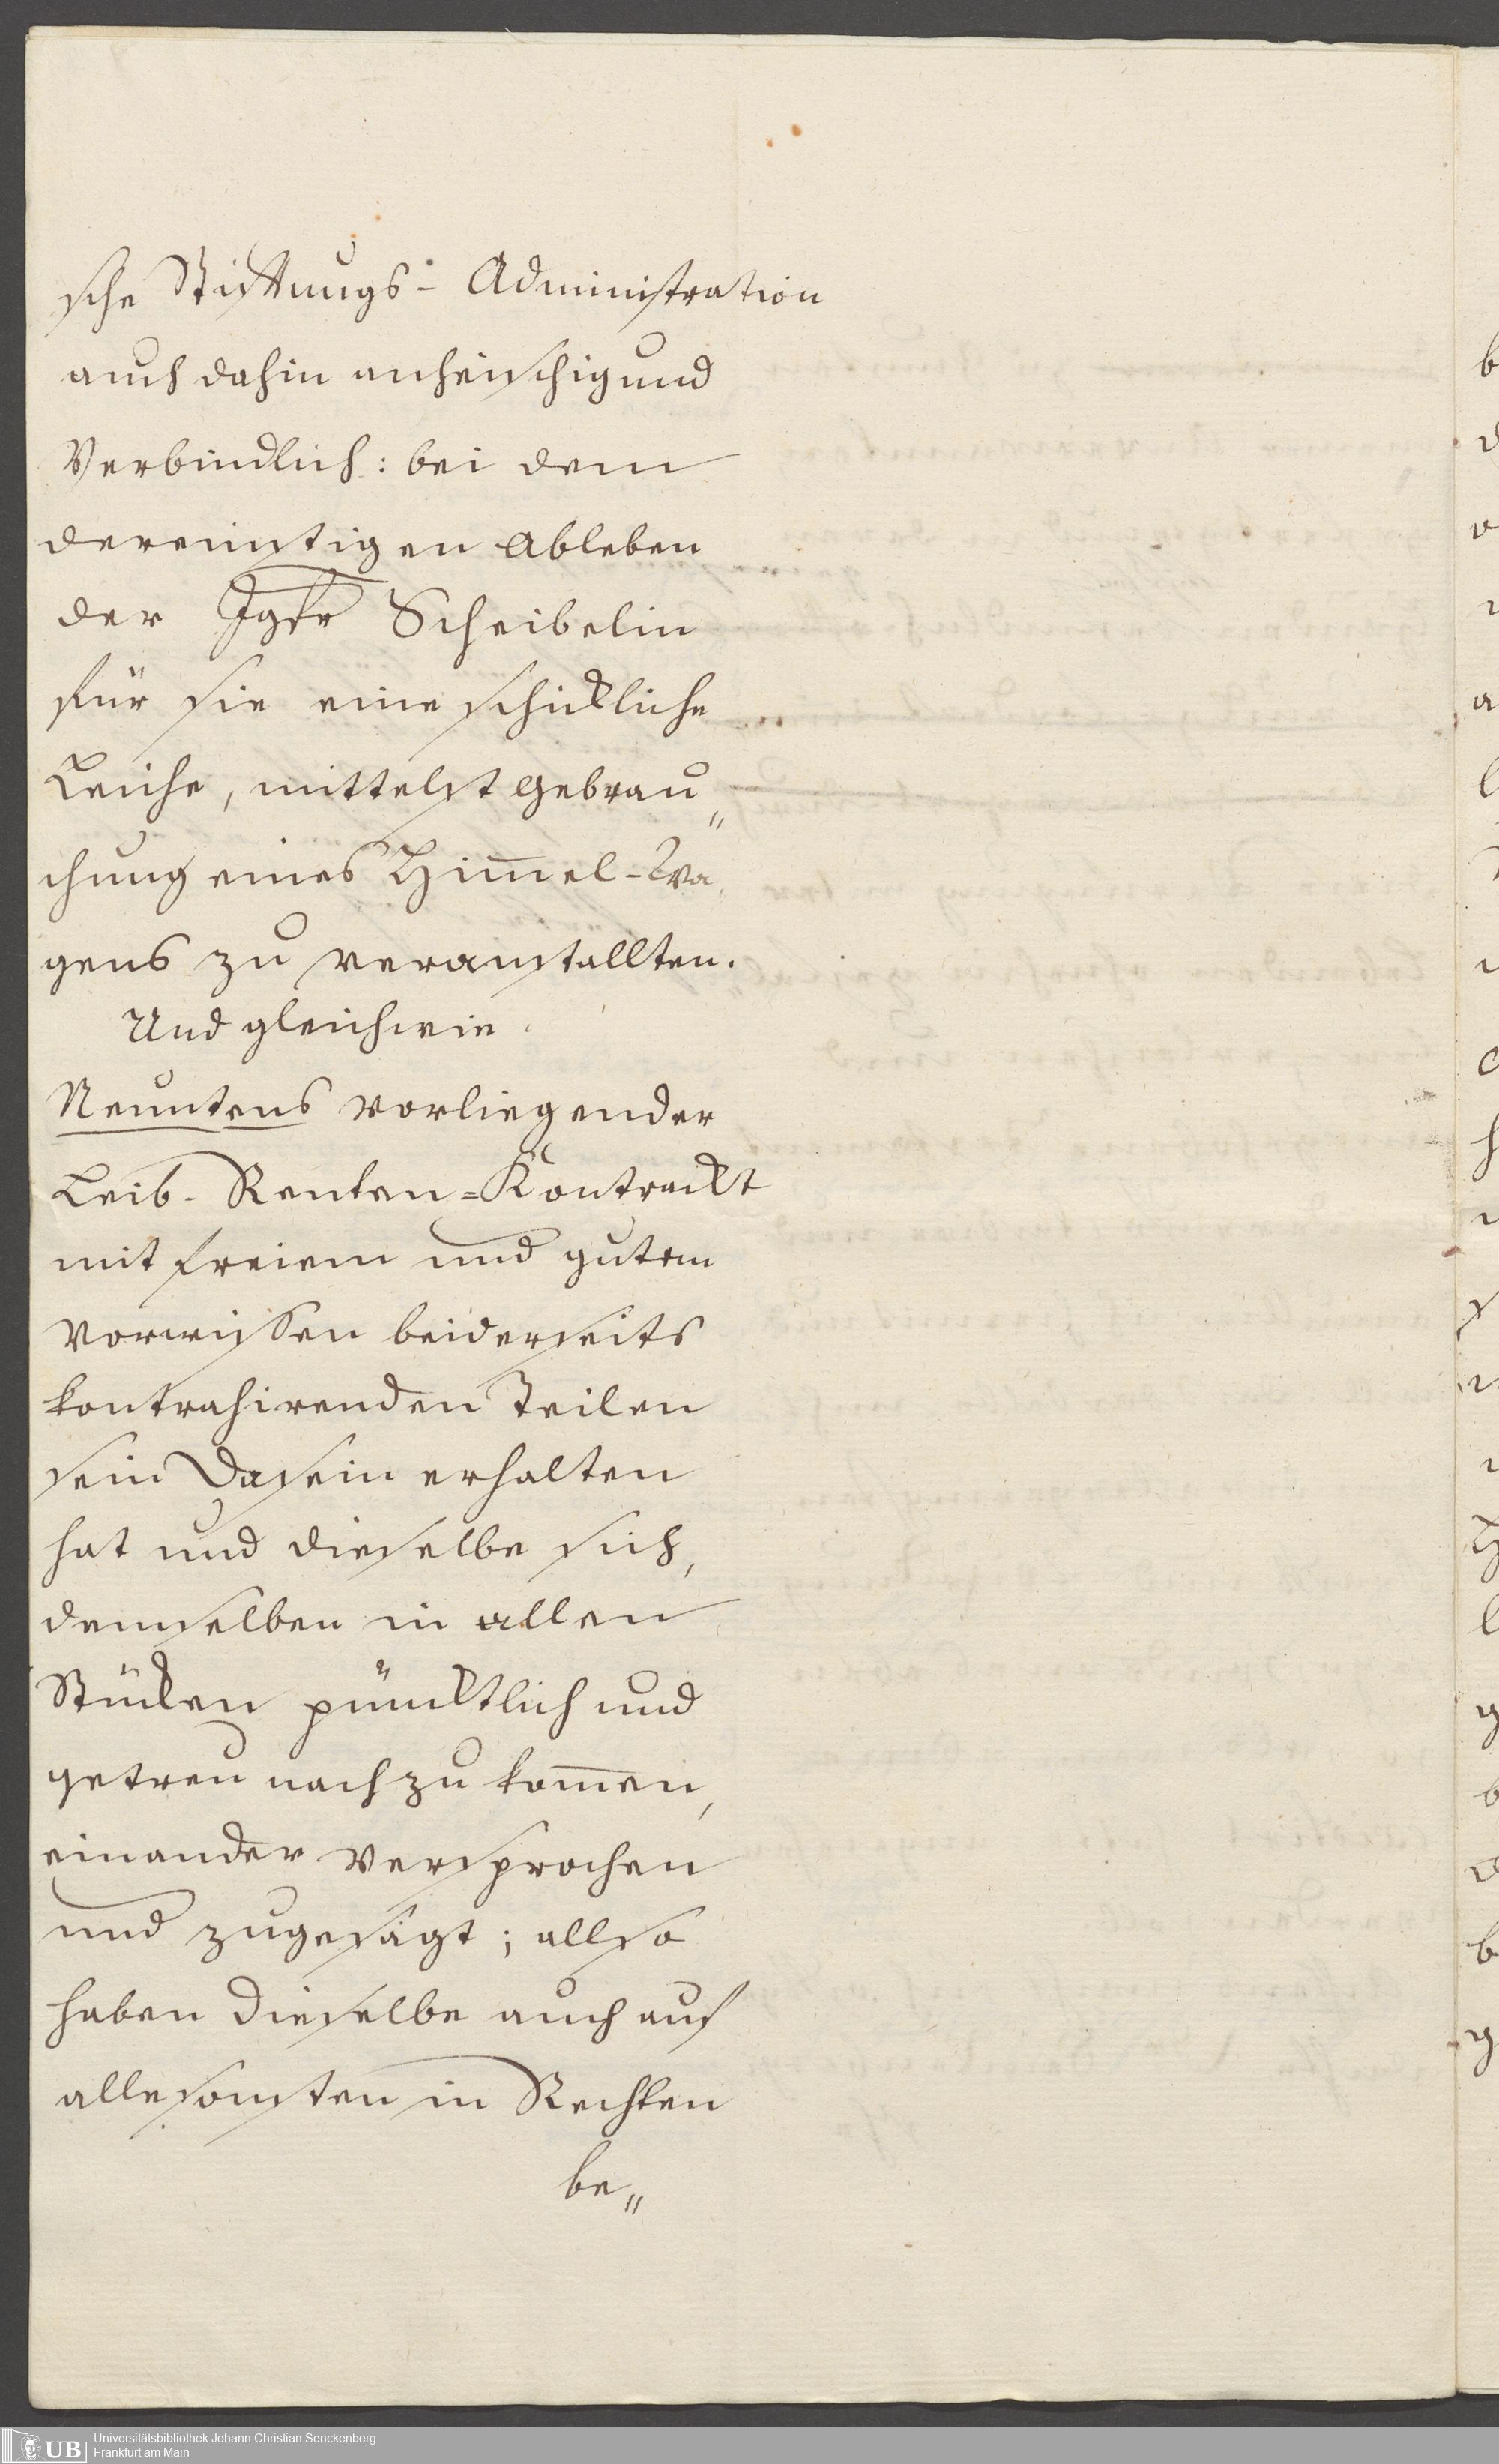 sche Stiftungs- Administration
auch dahin anheischig und
Verbindlich: bei dem
dereinstigen Ableben
der Jgfr Scheibelin
für sie eine schickliche
Leiche, mittelst Gebrau„
chung eines Him̄el-Wa„
gens zu veranstallten.
Und gleichwie
Neuntens vorliegender
Leib-Renten=Kontrackt
mit freiem und gutem
Vorwissen beiderseits
kontrahirenden Teilen
sein Dasein erhalten
hat und dieselbe sich,
demselben in allen
Stücken püncktlich und
getreu nach zu kom̄en,
einander versprochen
und zugesagt; allso
haben dieselbe auch auf
alle sonsten in Rechten
be„
UB Universitätsbibliothek Johann Christian Senckenberg
Frankfurt am Main